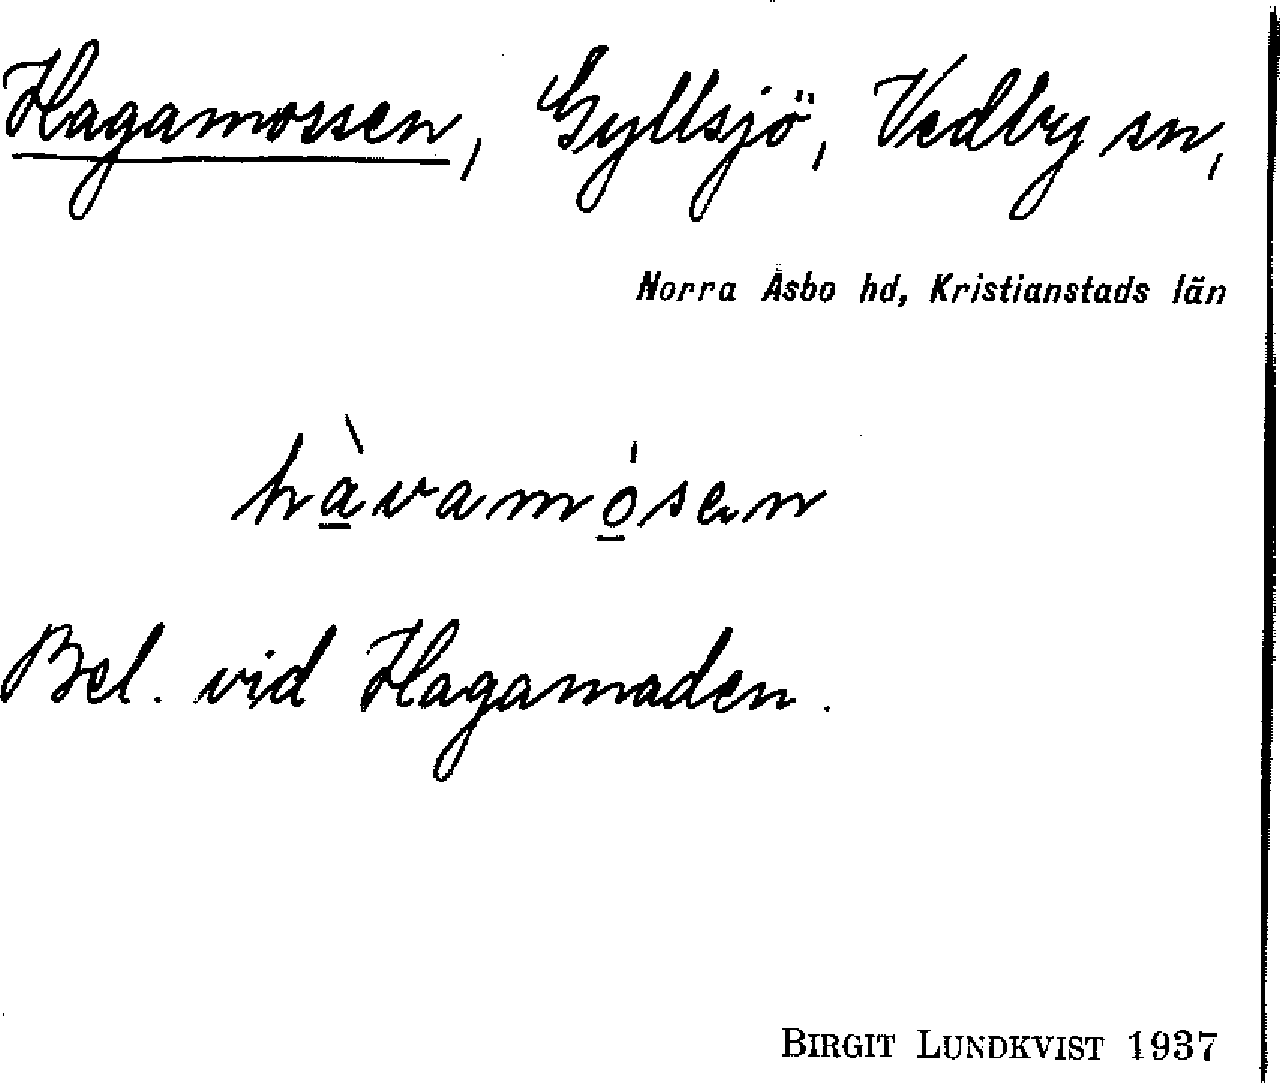 Hagamossen, Gyllsjö, Vedby sn,
Norra Åsbo hd, Kristianstads län
hàvamósen
Bel. vid Hagamaden.
BIRGIT LUNDKVIST 1937